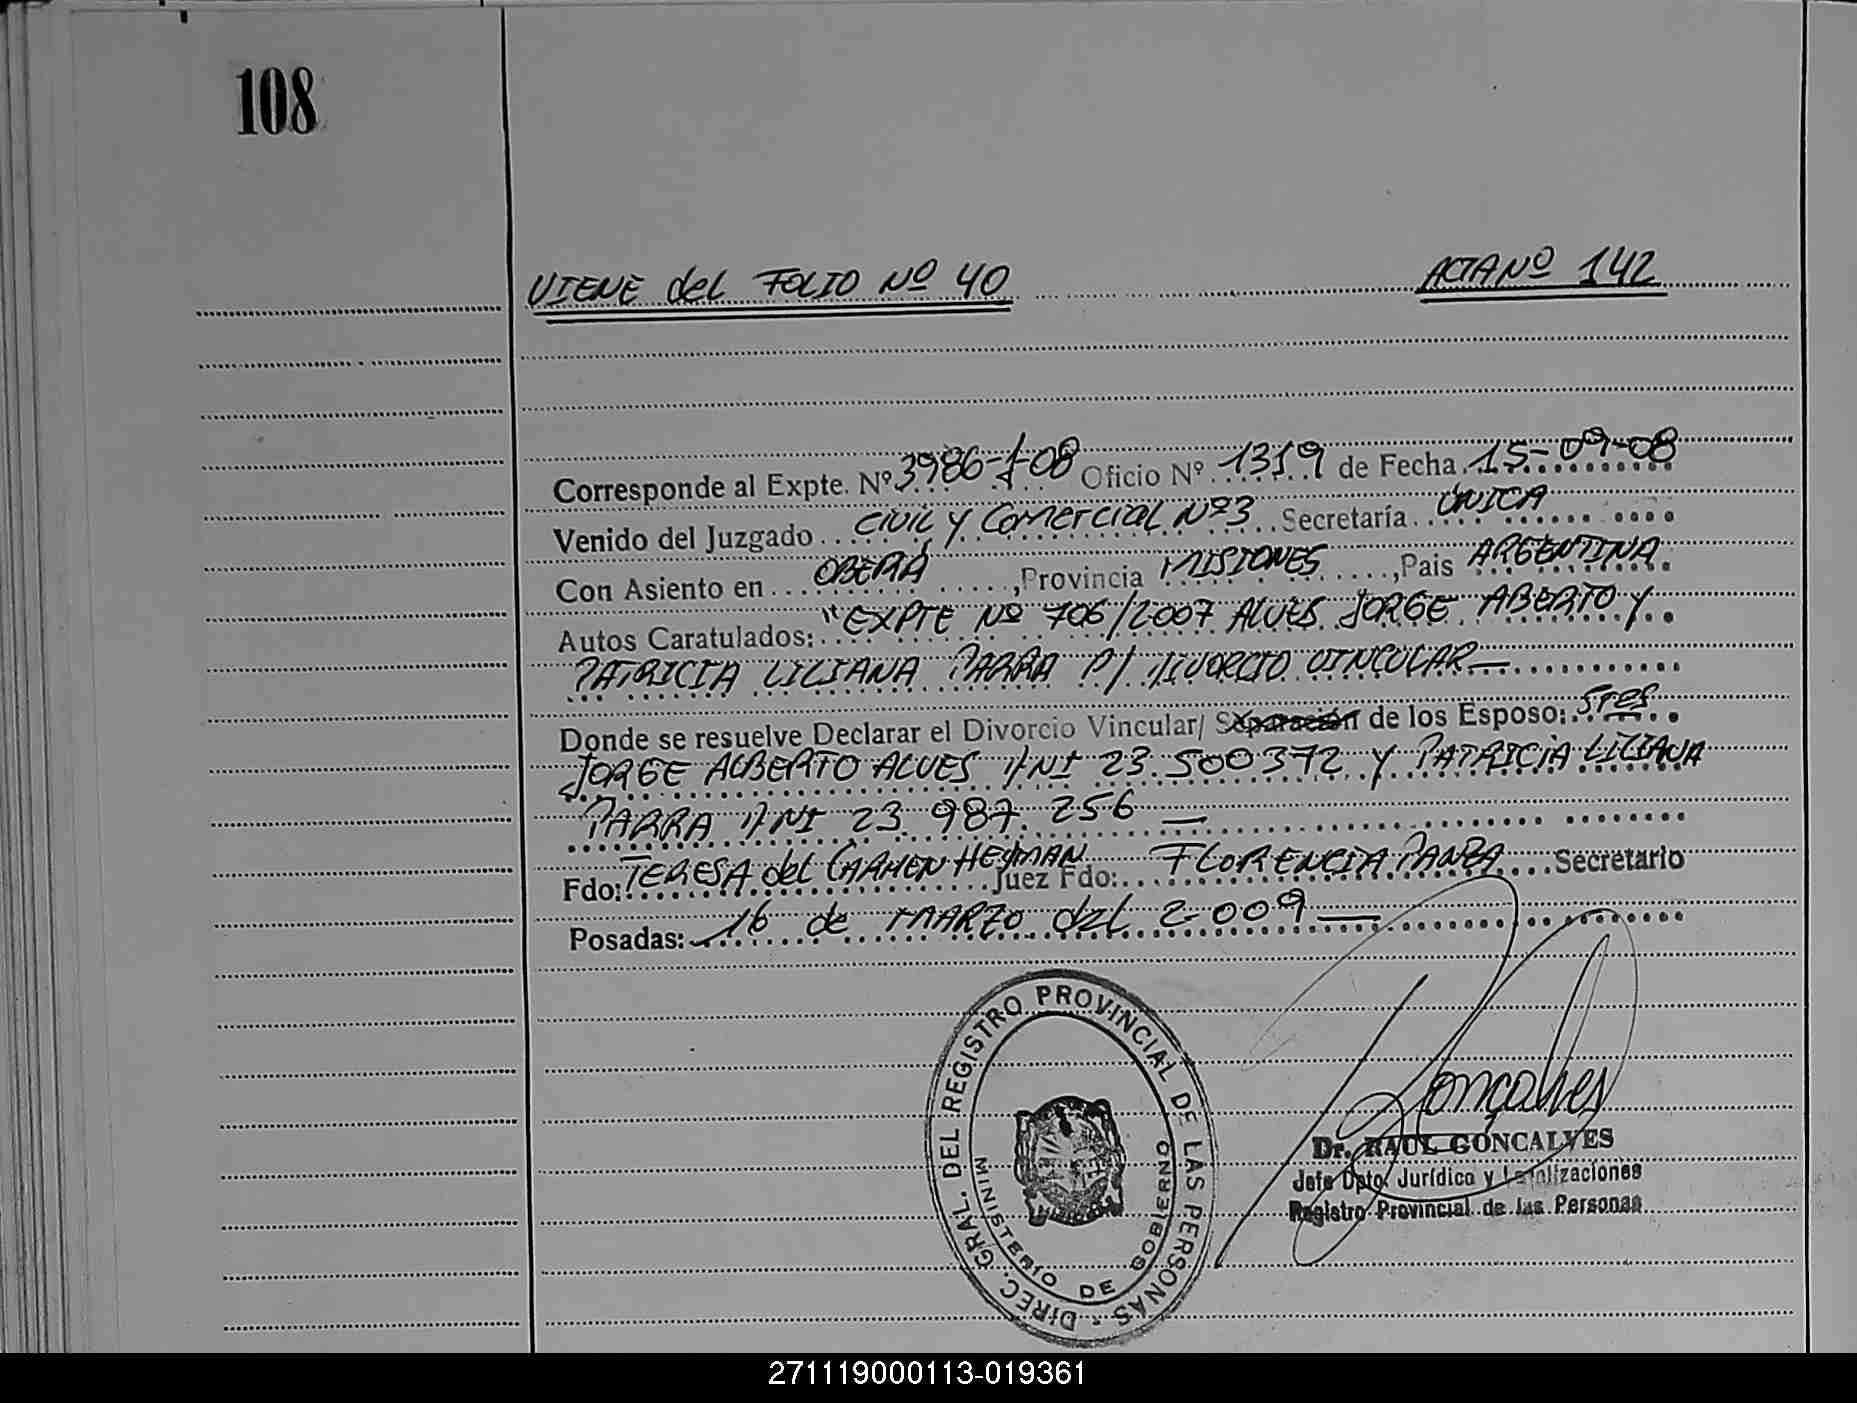 108
VIENE del FOLIO Nº 40 ACTA Nº 142
Corresponde al Expte. Nº 3986-J-08 Oficio Nº 1319 de Fecha 15-09-08
Venido del Juzgado CIVIL y COMERCIAL Nº 3 Secretaría ÚNICA
Con Asiento en OBERÁ, Provincia MISIONES, Pais ARGENTINA
Autos Caratulados: "EXPTE Nº 706/2007 ALVES JORGE ABERTO Y
PATRICIA LILIANA PARRA P/ DIVORCIO VINCULAR—
Donde se resuelve Declarar el Divorcio Vincular/ Separación de los Esposo: Sres
JORGE ALBERTO ALVES DNI 23.500372 Y PATRICIA LILIANA
PARRA DNI 23.987.256 —
Fdo: TERESA del CARMEN Juez Fdo: FLORENCIA Secretario
Posadas: 16 de MARZO del 2.009 —
DIREC. GRAL. DEL REGISTRO PROVINCIAL DE LAS PERSONAS -
MINISTERIO DE GOBIERNO
Gonçalves
Dr. RAUL GONCALVES
Jefe Dpto. Jurídico y Legalizaciones
Registro Provincial de las Personas
271119000113-019361